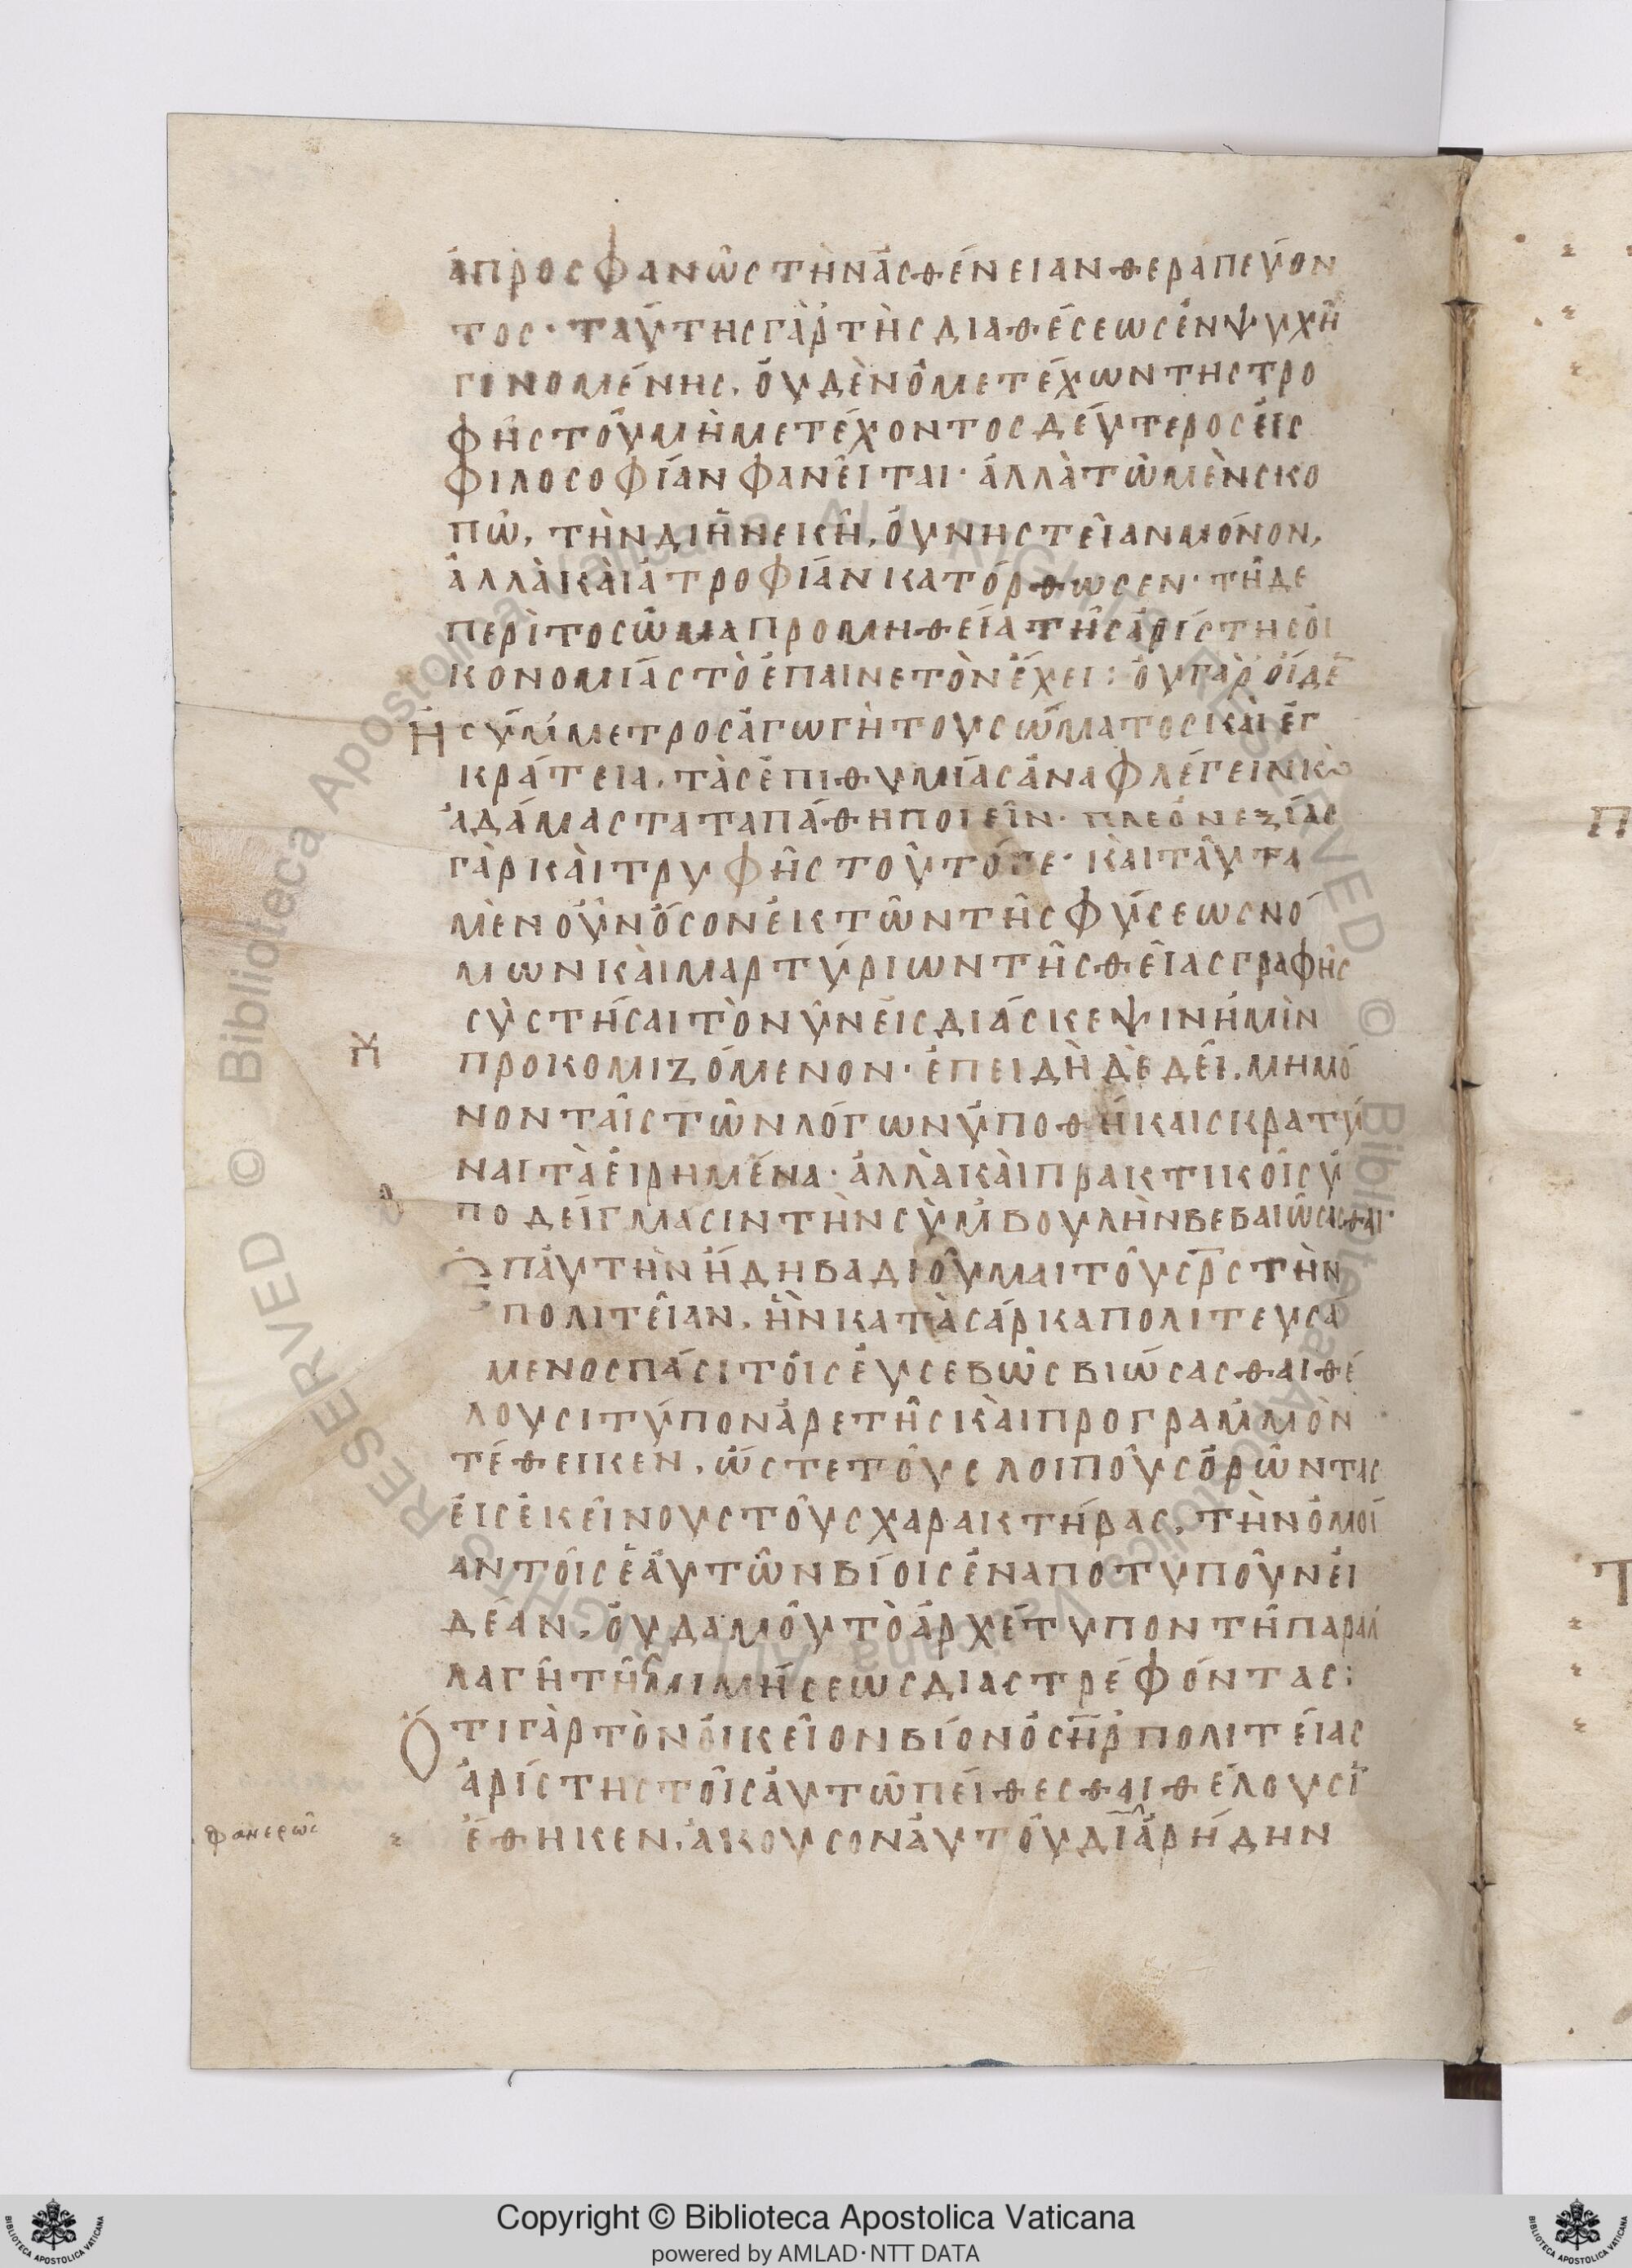 ἀπροσφανῶς τὴν ἀσθένειαν θεραπεύον
τος· ταύτης γὰρ τῆς διαθέσεως ἐν ψυχῆ
γινομένης, οὐδὲν ὁ μετέχων τῆς τρο
φῆς τοῦ μὴ μετέχοντος δεύτερος εἰς
φιλοσοφίαν φανεῖται· ἀλλὰ τῶ μὲν σκο
πῶ, τὴν διηνεκῆ, οὐ νηστείαν μόνον,
ἀλλὰ καὶ ἀτροφίαν κατόρθωσεν· τῆ δε
περὶ το σῶμα προμηθεία τῆς ἀρίστης οἰ
κονομίας τὸ ἐπαινετὸν ἔχει: οὐ γὰρ οἶδε
ἡ σύμμετρος ἀγωγὴ του σώματος καὶ ἐγ
κράτεια, τὰς ἐπιθυμίας ἀναφλέγειν κ(αὶ)
ἀδάμαστα τα πάθη ποιεῖν· πλεονεξίας
γὰρ καὶ τρυφῆς τοῦτό γε· καὶ ταῦτα
μὲν οὖν ὅσον ἐκ τῶν τῆς φύσεως νό
μων καὶ μαρτυρίων τῆς θείας γραφῆς
συστῆσαι τὸ νῦν εἰς διάσκεψιν ἡμῖν
προκομιζόμενον· ἐπειδὴ δὲ δεῖ, μη μό
νον ταῖς τῶν λόγων ὑποθήκαις κρατύ
ναι τὰ εἰρημένα· ἀλλὰ καὶ πρακτικοῖς ὑ
ποδείγμασιν τὴν συμβουλὴν βεβαιώσασθαι·
Ἐπ' αὐτὴν ἤδη βαδιοῦμαι τοῦ σρς τὴν
πολιτείαν, ἣν κατὰ σάρκα πολιτευσά
μενος πᾶσι τοῖς εὐσεβῶς βιώσασθαι θέ
λουσι τύπον ἀρετῆς καὶ προγραμμὸν
τέθεικεν, ὥστε τοὺς λοιποὺς ὁρῶντας
εἰς ἐκείνους τοὺς χαρακτήρας, τὴν ὁμοί
αν τοῖς ἑαυτῶν βίοις ἐναποτυποῦν εἰ
δέαν, οὐδαμοῦ τὸ ἀρχέτυπον τῆ παραλ
λαγῆ τῆς μιμήσεως διαστρέφοντας:
Ὅτι γὰρ τὸν οἰκεῖον βίον ὁ σηρ πολιτείας
ἀρίστης τοῖς αὐτῶ πείθεσθαι θέλουσῑ
ἔθηκεν, ἄκουσον αὐτοῦ διαρήδην
φανερῶς